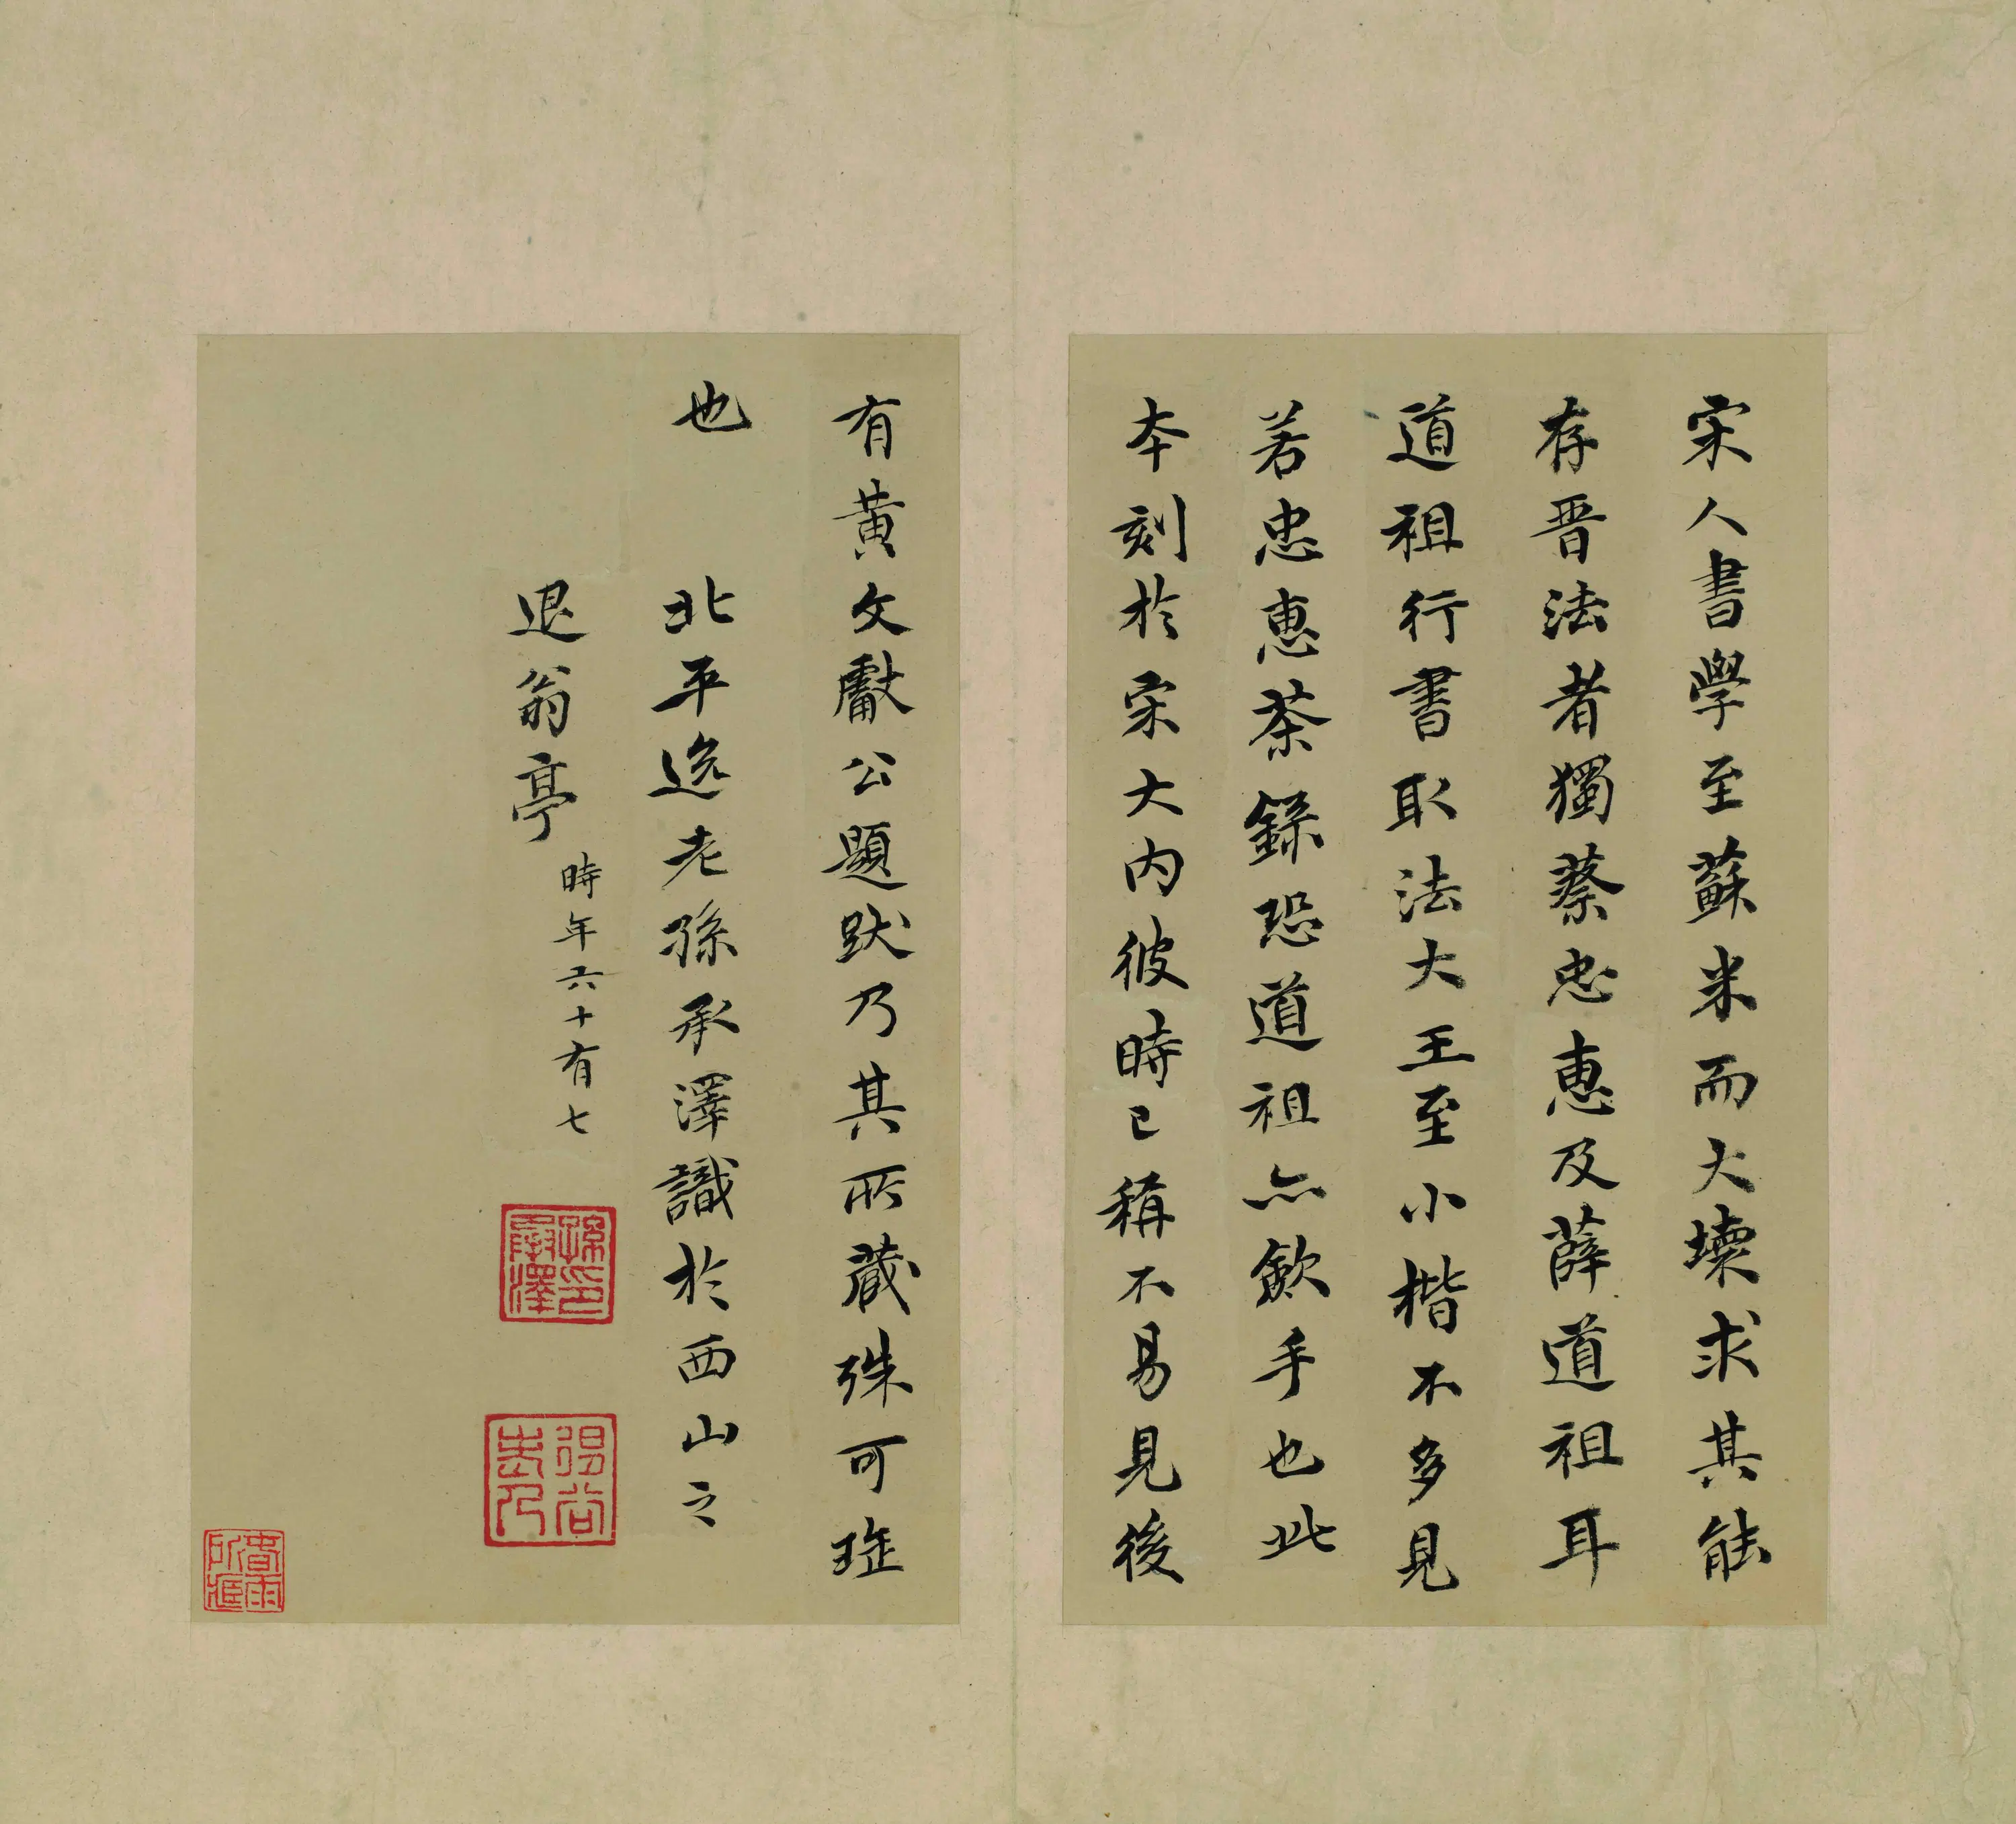 宋人書學至蘇米而大壞求其能
存晋法者獨蔡忠惠及薛道祖耳
道祖行書取法大王至小楷不多見
若忠惠茶錄恐道祖亦斂手也此
本刻於宋大內彼時已稱不易見後
有黃文獻公題跋乃其所藏殊可珍
也
北平逸老孫承澤識於西山之
退翁亭
時年六十有七
孫承澤印